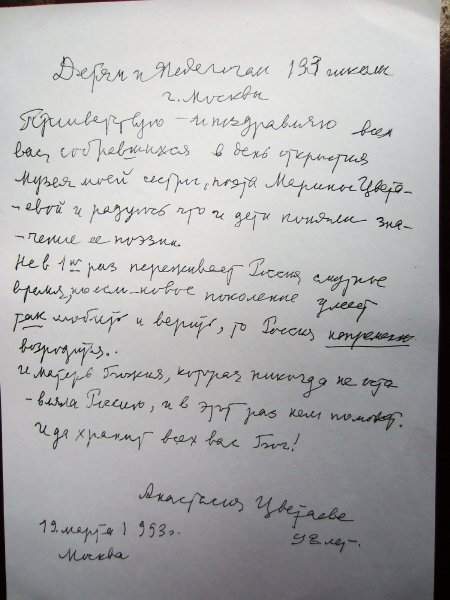 Детям и Педагогам 133 школы
г. Москвы
Приветствую – и поздравляю всех
вас, собравшихся в день открытия
Музея моей сестры, поэта Марины Цвета-
-евой и радуюсь что и дети поняли зна-
-чение ее поэзии.
Не в 1ый раз переживает Россия смутное
время, но если – новое поколение умеет
так любить и верить, то Россия непременно
возродится..
И матерь Божия, которая никогда не оста
-вляла Россию, и в этот раз нам поможет.
И да хранит всех вас Бог!
Анастасия Цветаева
19 марта 1993 г. 98 лет.
Москва